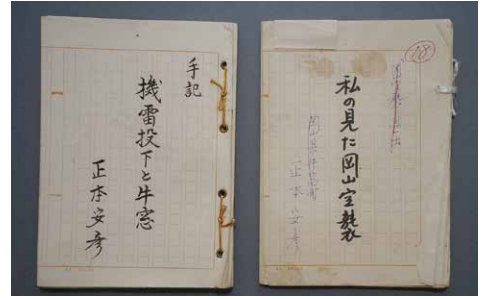 手記
機雷投下と牛窓
正本安彦
18
私の見た岡山空襲
正本安彦